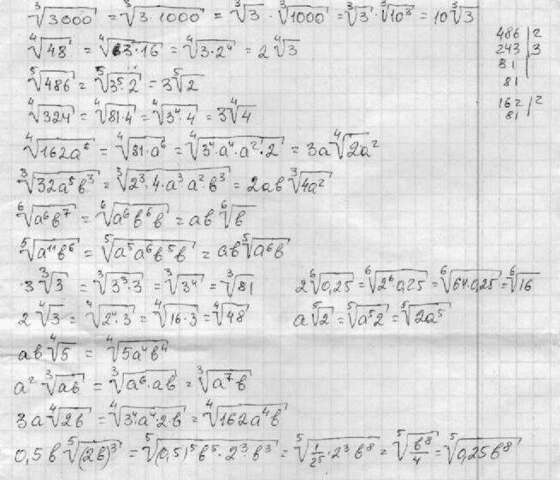 ∛3000 = ∛(3·1000) = ∛3 · ∛1000 = ∛3 · ∛10³ = 10∛3
∜48 = ∜(3·16) = ∜(3·2⁴) = 2∜3
⁵√486 = ⁵√(3⁵·2) = 3⁵√2
∜324 = ∜(81·4) = ∜(3⁴·4) = 3∜4
∜(162a⁶) = ∜(81·a⁶) = ∜(3⁴·a⁴·a²·2) = 3a∜(2a²)
∛(32a⁵b³) = ∛(2³·4·a³a²b³) = 2ab∛(4a²)
⁶√(a⁶b⁷) = ⁶√(a⁶b⁶b) = ab⁶√b
⁵√(a¹¹b⁶) = ⁵√(a⁵a⁶b⁵b) = ab⁵√(a⁶b)
3∛3 = ∛(3³·3) = ∛3⁴ = ∛81 2⁶√0,25 = ⁶√(2⁶·0,25) = ⁶√(64·0,25) = ⁶√16
2∜3 = ∜(2⁴·3) = ∜(16·3) = ∜48 a⁵√2 = ⁵√(a⁵2) = ⁵√(2a⁵)
ab∜5 = ∜(5a⁴b⁴)
a²∛(ab) = ∛(a⁶·ab) = ∛(a⁷b)
3a∜(2b) = ∜(3⁴a⁴·2·b) = ∜(162a⁴b)
0,5b⁵√(2b)³ = ⁵√((0,5)⁵b⁵·2³·b³) = ⁵√(1/2⁵·2³b⁸) = ⁵√(b⁸/4) = ⁵√(0,25b⁸)
486 | 2
243 | 3
81
81
162 | 2
81